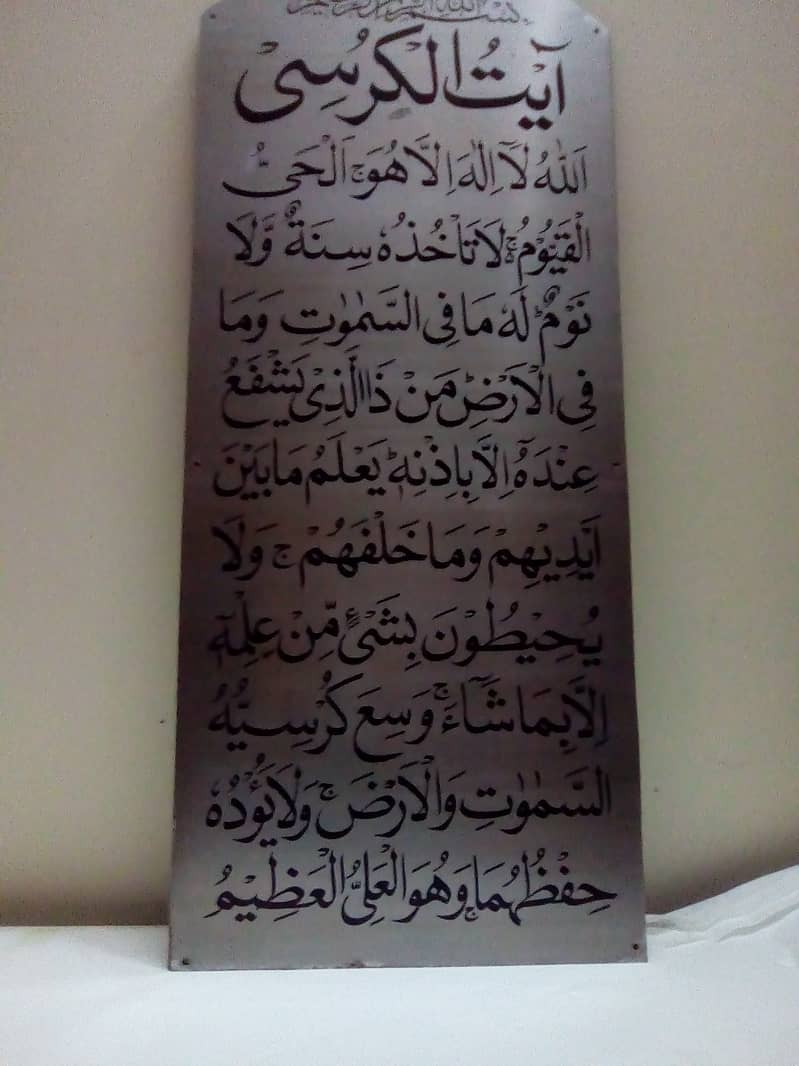 بسم الله الرحمن الرحيم
آيَتُ الْكُرْسِیْ
اَللّٰهُ لَآ اِلٰهَ اِلَّا هُوَ ۚ اَلْحَیُّ
الْقَيُّوْمُ ۚ لَا تَاْخُذُهٗ سِنَةٌ وَّلَا
نَوْمٌ ؕ لَهٗ مَا فِی السَّمٰوٰتِ وَمَا
فِی الْاَرْضِ ؕ مَنْ ذَا الَّذِیْ يَشْفَعُ
عِنْدَهٗٓ اِلَّا بِاِذْنِهٖ ؕ يَعْلَمُ مَا بَيْنَ
اَيْدِيْهِمْ وَمَا خَلْفَهُمْ ۚ وَلَا
يُحِيْطُوْنَ بِشَیْءٍ مِّنْ عِلْمِهٖٓ
اِلَّا بِمَا شَآءَ ۚ وَسِعَ كُرْسِيُّهُ
السَّمٰوٰتِ وَالْاَرْضَ ۚ وَلَا يَؤُدُهٗ
حِفْظُهُمَا ۚ وَهُوَ الْعَلِیُّ الْعَظِيْمُ